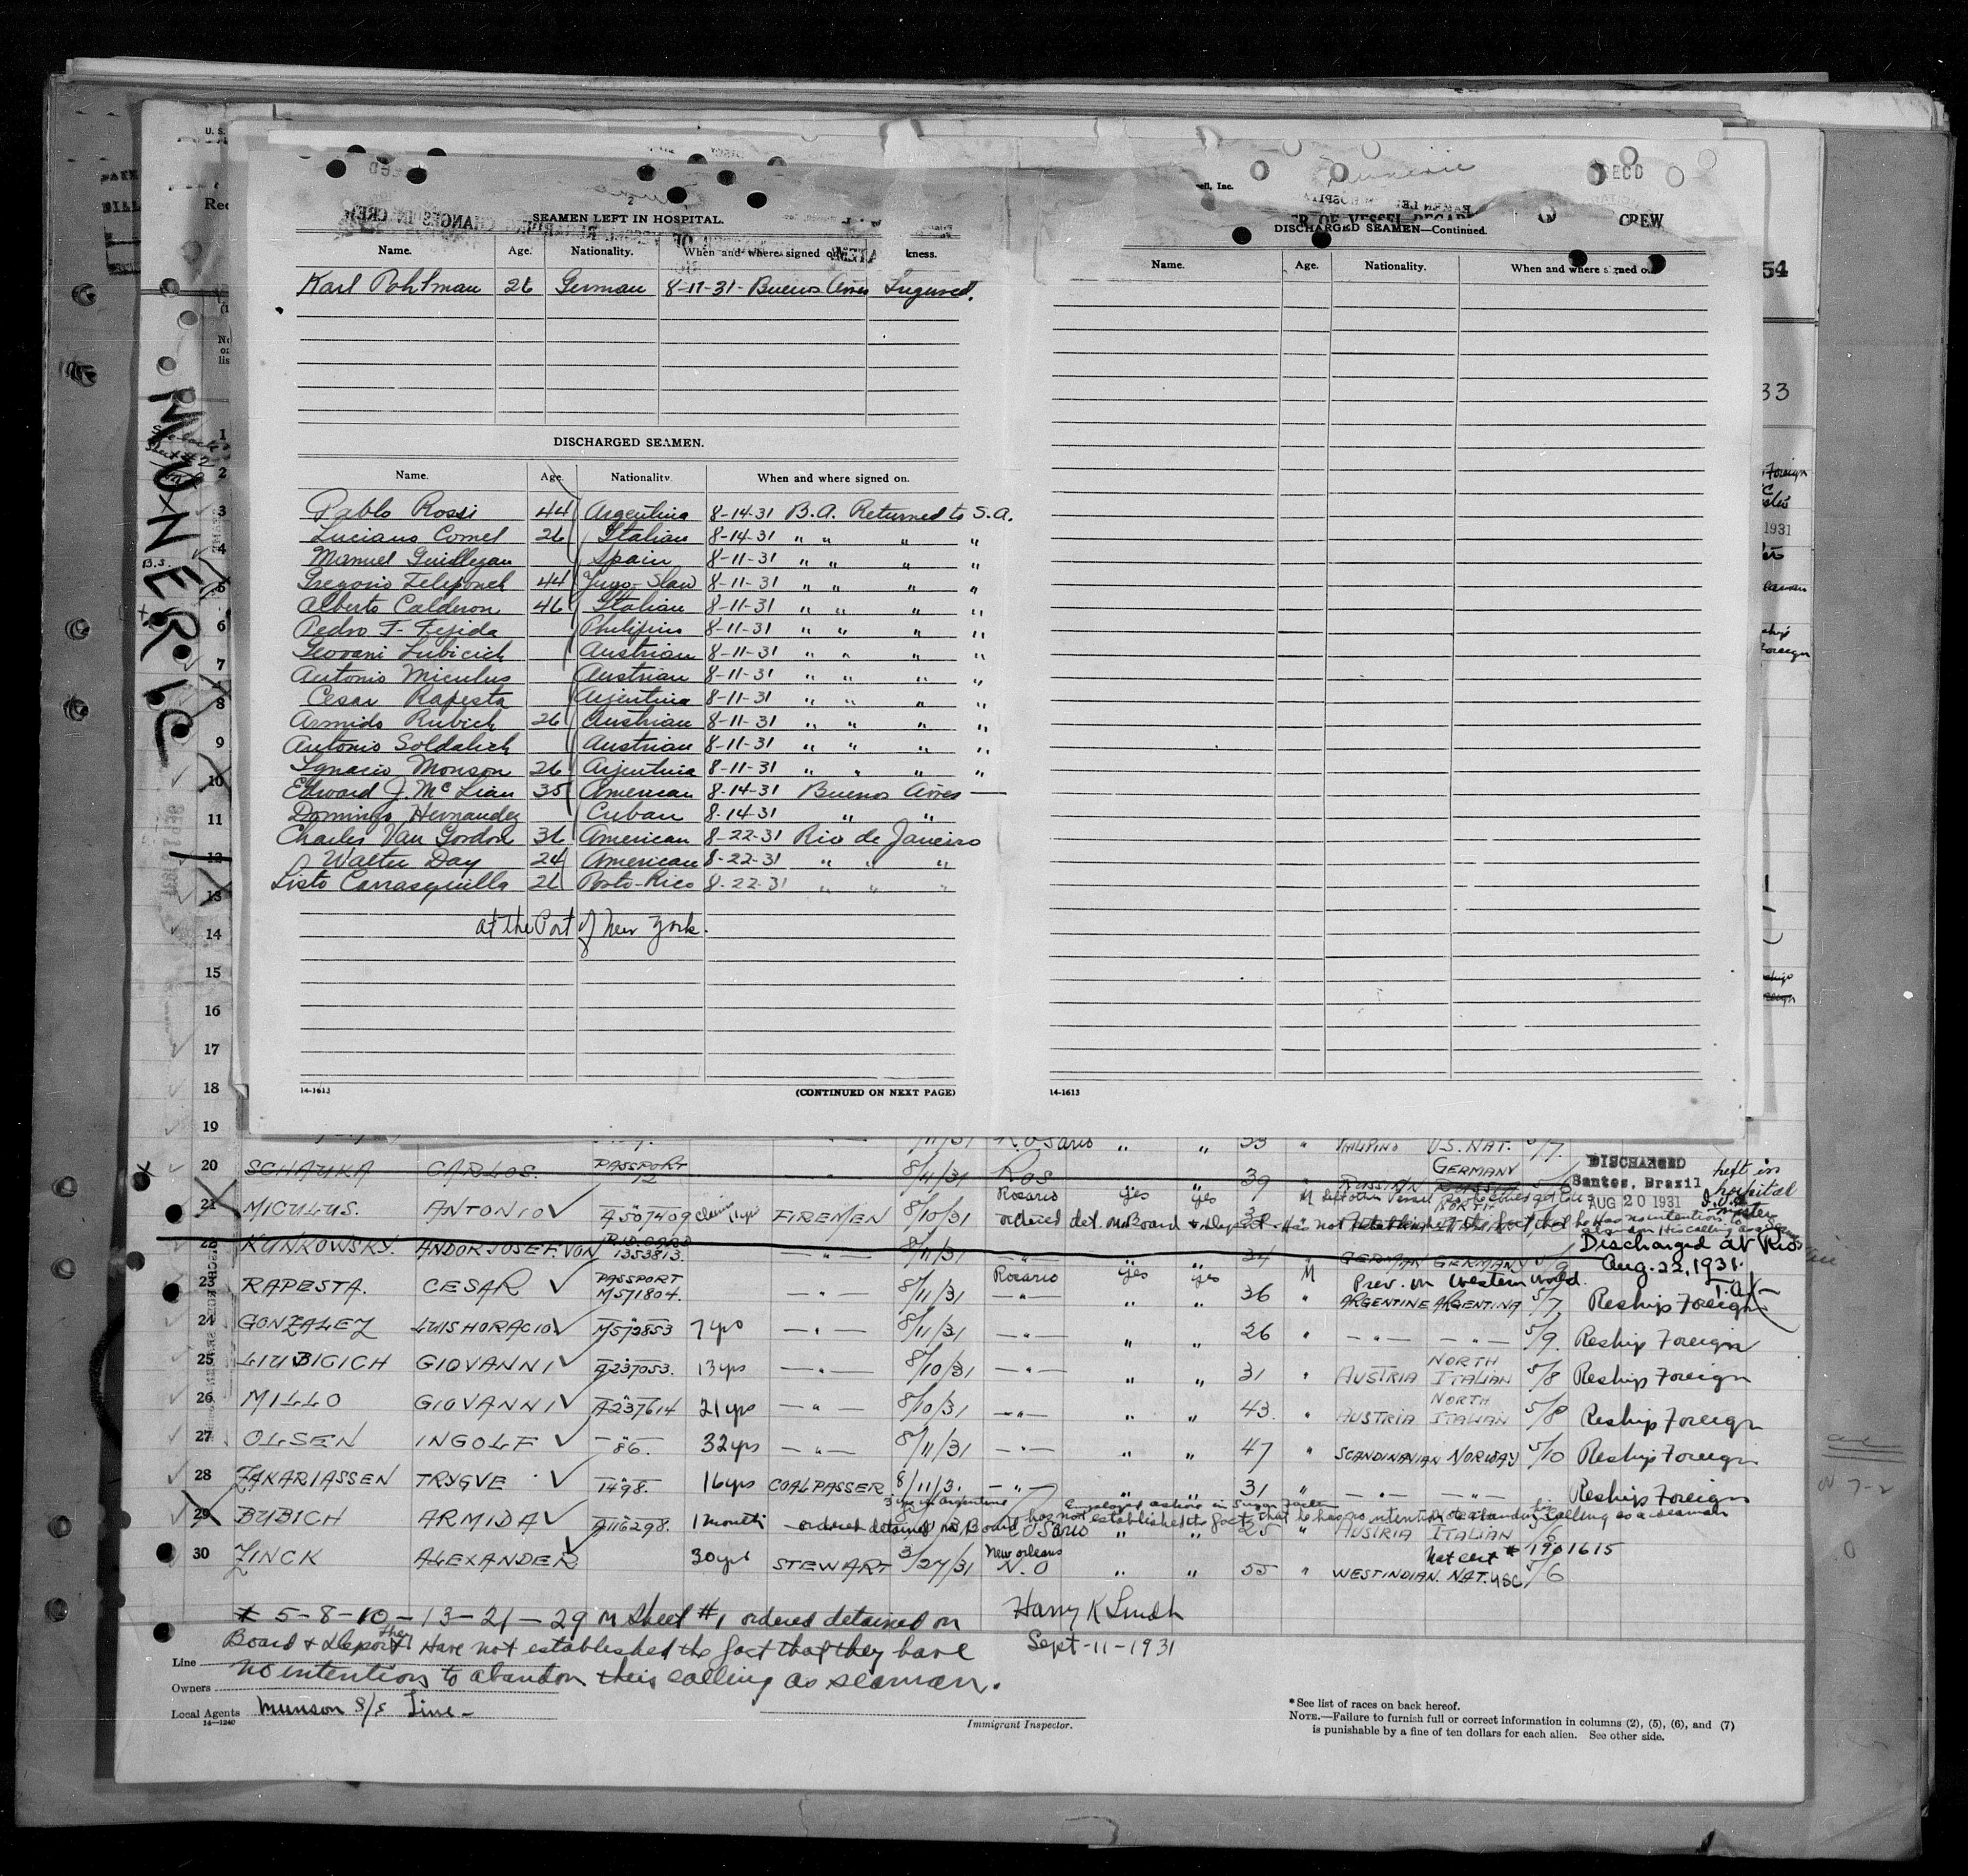 SEAMEN LEFT IN HOSPITAL.
Name. Age. Nationality. When and where signed on. kness.
Karl Pohlman 26 German 8-11-31- Buenos Aires Ingured.
DISCHARGED SEAMEN.
Name. Age. Nationality. When and where signed on.
Pablo Rossi 44 Argentina 8-14-31 B.A. Returned to S.A.
Luciano Comel 26 Italian 8-14-31 " " " "
Manuel Spain 8-11-31 " " " "
Gregorio 44 Jugo-Slav 8-11-31 " " " "
Alberto Calderon 46 Italian 8-11-31 " " " "
Pedro F. Philipino 8-11-31 " " " "
Geovani Lubicich Austrian 8-11-31 " " " "
Antonio Miculus Austrian 8-11-31 " " " "
Cesar Rapesta Argentina 8-11-31 " " " "
Armido Rubich 26 Austrian 8-11-31 " " " "
Antonio Soldatich Austrian 8-11-31 " " " "
Ignacio Monson 26 Argentina 8-11-31 " " " "
Edward J. Mc Lian 35 American 8-14-31 Buenos Aires —
Domingo Hernandez Cuban 8-14-31 " "
Charles Van Gordon 36 American 8-22-31 Rio de Janeiro
Walter Day 24 American 8-22-31 " " "
Listo Carrasquilla 26 Porto-Rico 8-22-31 " " "
at the Port of New York.
14-1613 (CONTINUED ON NEXT PAGE)
ell, Inc.
REC'D
CREW
DISCHARGED SEAMEN—Continued.
Name. Age. Nationality. When and where signed on.
14-1613
MUNERIC
B.S.
1
2
3
4
5
6
7
8
9
10
11
12
13
14
15
16
17
18
19 8/11/31 Rosario " " 33 " PHILIPINO U.S. NAT. 5/7.
20 SCHAUKA CARLOS. PASSPORT 72 8/11/31 ROS " " 39 RUSSIAN RUSSIA GERMANY DISCHARGED Santos, Brazil AUG 20 1931 Left in hospital
21 MICULUS. ANTONIO A507409 FIREMEN 8/10/31 Rosario yes yes M
ordered det. on Board & Deport. Has not established the fact that he has no intention to abandon his calling as a seaman
22 KUNKOWSKY. ANDOR JOSEF. VON I.D. CARD 1353813. — " — 8/11/31 — " — " " 24 GERMAN GERMANY 5/9 Discharged at Rio Aug. 22, 1931.
23 RAPESTA. CESAR PASSPORT M571804. — " — 8/11/31 Rosario — " — yes yes 36 M ARGENTINE ARGENTINA 5/7 Prev. on Western World. Reship Foreign
24 GONZALEZ LUIS HORACIO M572853 7 yrs — " — 8/11/31 — " — " " 26 " — " — — " — 5/9. Reship Foreign
25 LIUBICICH GIOVANNI A237053. 13 yrs — " — 8/10/31 — " — " " 31 " AUSTRIA NORTH ITALIAN 5/8 Reship Foreign
26 MILLO GIOVANNI A237614 21 yrs — " — 8/10/31 — " — " " 43. " AUSTRIA NORTH ITALIAN 5/8 Reship Foreign
27 OLSEN INGOLF 86. 32 yrs — " — 8/11/31 — " — " " 47 " SCANDINAVIAN NORWAY 5/10 Reship Foreign
28 ZAKARIASSEN TRYGVE 1498. 16 yrs COALPASSER 8/11/3. — " — " " 31 " — " — — " — Reship Foreign
3 yrs in Argentine Employed ashore in Sugar Factory
29 BUBICH ARMIDA A116298. 1 month ROSARIO " " 25 " AUSTRIA ITALIAN 5/6
ordered detained on Board has not established the fact that he has no intention to abandon his calling as a seaman
30 ZINCK ALEXANDER 30 yrs STEWART 3/27/31 New Orleans N.O " " 55 " WESTINDIAN. NAT. USC 5/6 Nat Cert # 1901615
* 5-8-10-13-21-29 on Sheet #1 ordered detained on
Board & Deport. They Have not established the fact that they have
no intention to abandon their calling as seaman.
Harry K Lindh
Sept-11-1931
Line
Owners
Local Agents Munson S/S Line -
14-1240
Immigrant Inspector.
* See list of races on back hereof.
NOTE.—Failure to furnish full or correct information in columns (2), (5), (6), and (7)
is punishable by a fine of ten dollars for each alien. See other side.
54
33
1931